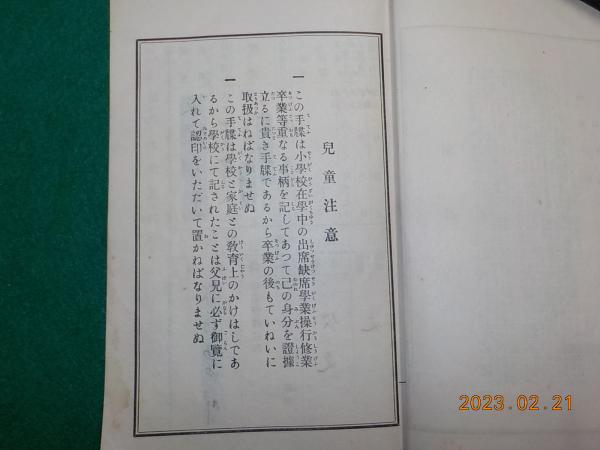 兒童注意
一 この手牒は小學校在學中の出席缺席學業操行修業
卒業等重なる事柄を記してあつて己の身分を證據
立るに貴き手牒であるから卒業の後もていねいに
取扱はねばなりませぬ
一 この手牒は學校と家庭との敎育上のかけはしであ
るから學校にて記されたことは父兄に必ず御覽に
入れて認印をいただいて置かねばなりませぬ
2023.02.21